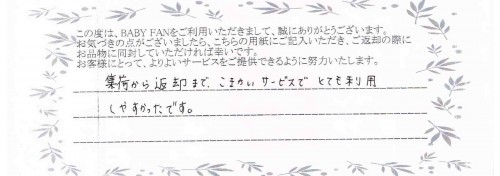 この度は、BABY FANをご利用いただきまして、誠にありがとうございます。
お気づきの点がございましたら、こちらの用紙にご記入いただき、ご返却の際に
お品物に同封していただければ幸いです。
お客様にとって、よりよいサービスをご提供できるように努力いたします。
集荷から返却まで、こまかいサービスでとても利用
しやすかったです。